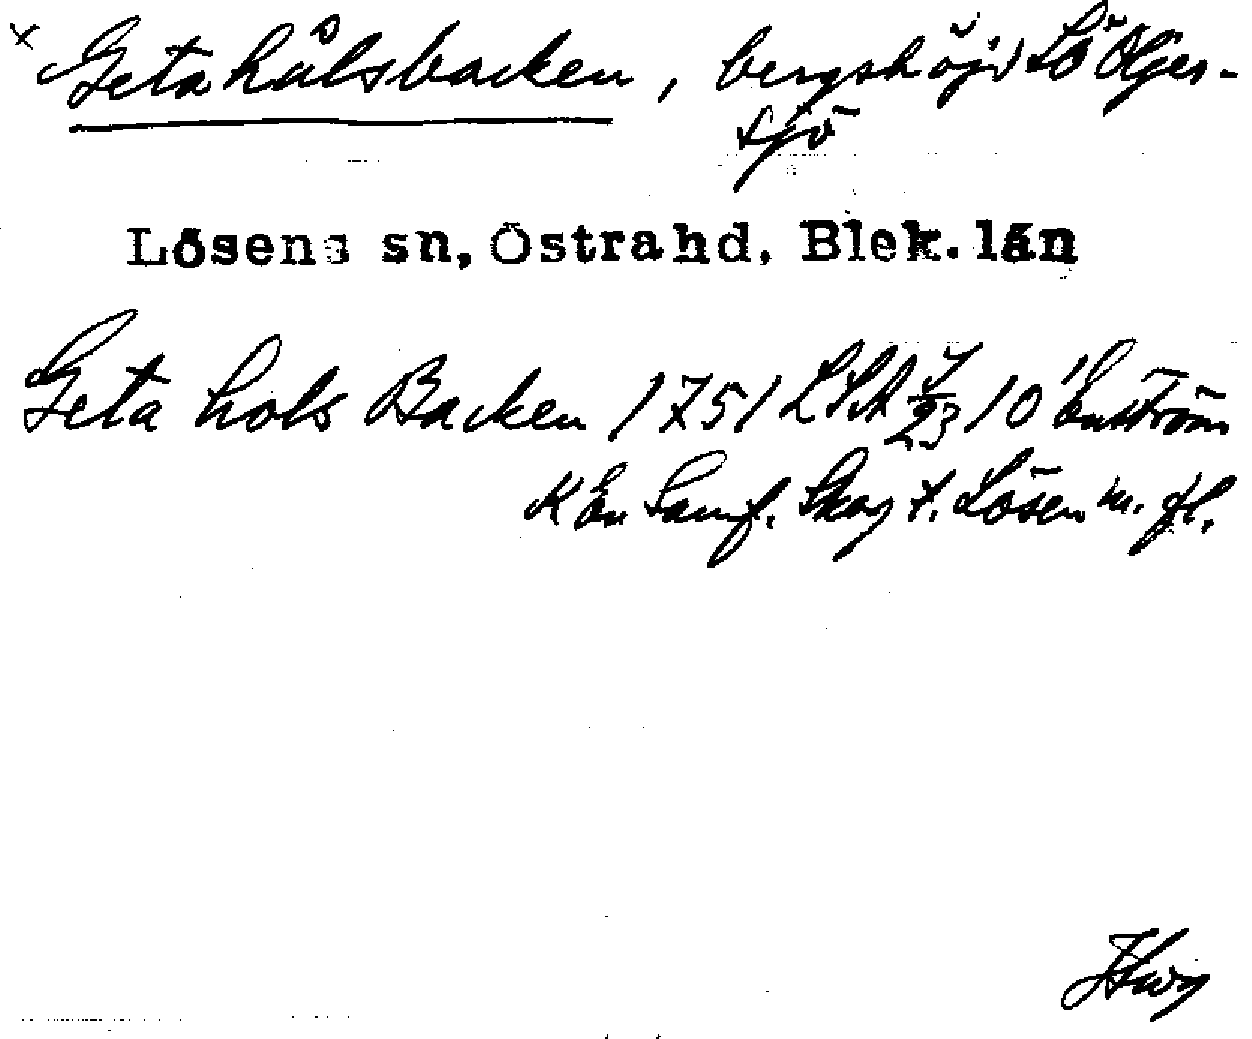 × Getahålsbacken, bergshöjd SÖ Öljer-
sjö
Lösens sn, Östra hd, Blek. län
Geta hols Backen 1751 LSA 10 Enström
K En Samf. Skog t. Lösen m. fl.